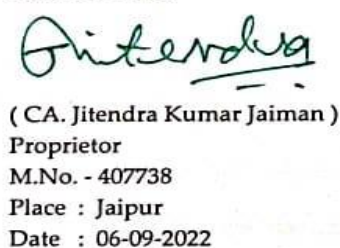 Jitendra
( CA. Jitendra Kumar Jaiman )
Proprietor
M.No. - 407738
Place : Jaipur
Date : 06-09-2022